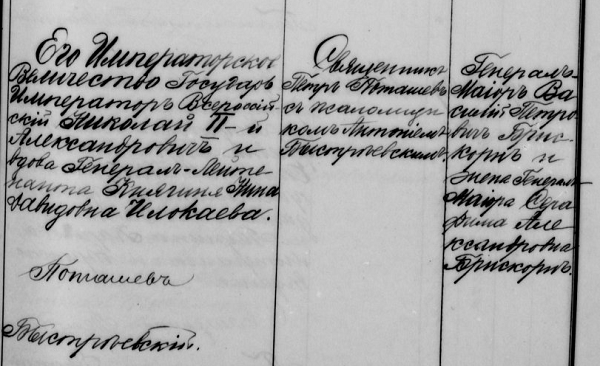 Его Императорское
Величество Государь
Императоръ Всероссій
скій Николай II-й
Александровичъ и
вдова Генералъ-Лейте
нанта Княгиня Нина
Давидовна Илокаева.
Поташевъ
Быстрѣевскій.
Священникъ
Петръ Поташевъ
съ псаломщи
комъ Антоніемъ
Быстрѣевскимъ.
Генералъ-
Маіоръ Ва
силій Петро
вичъ Бриск
корнъ и
жена Генералъ-
Маіора Сера
фима Але
ксандровна
Брискорнъ.